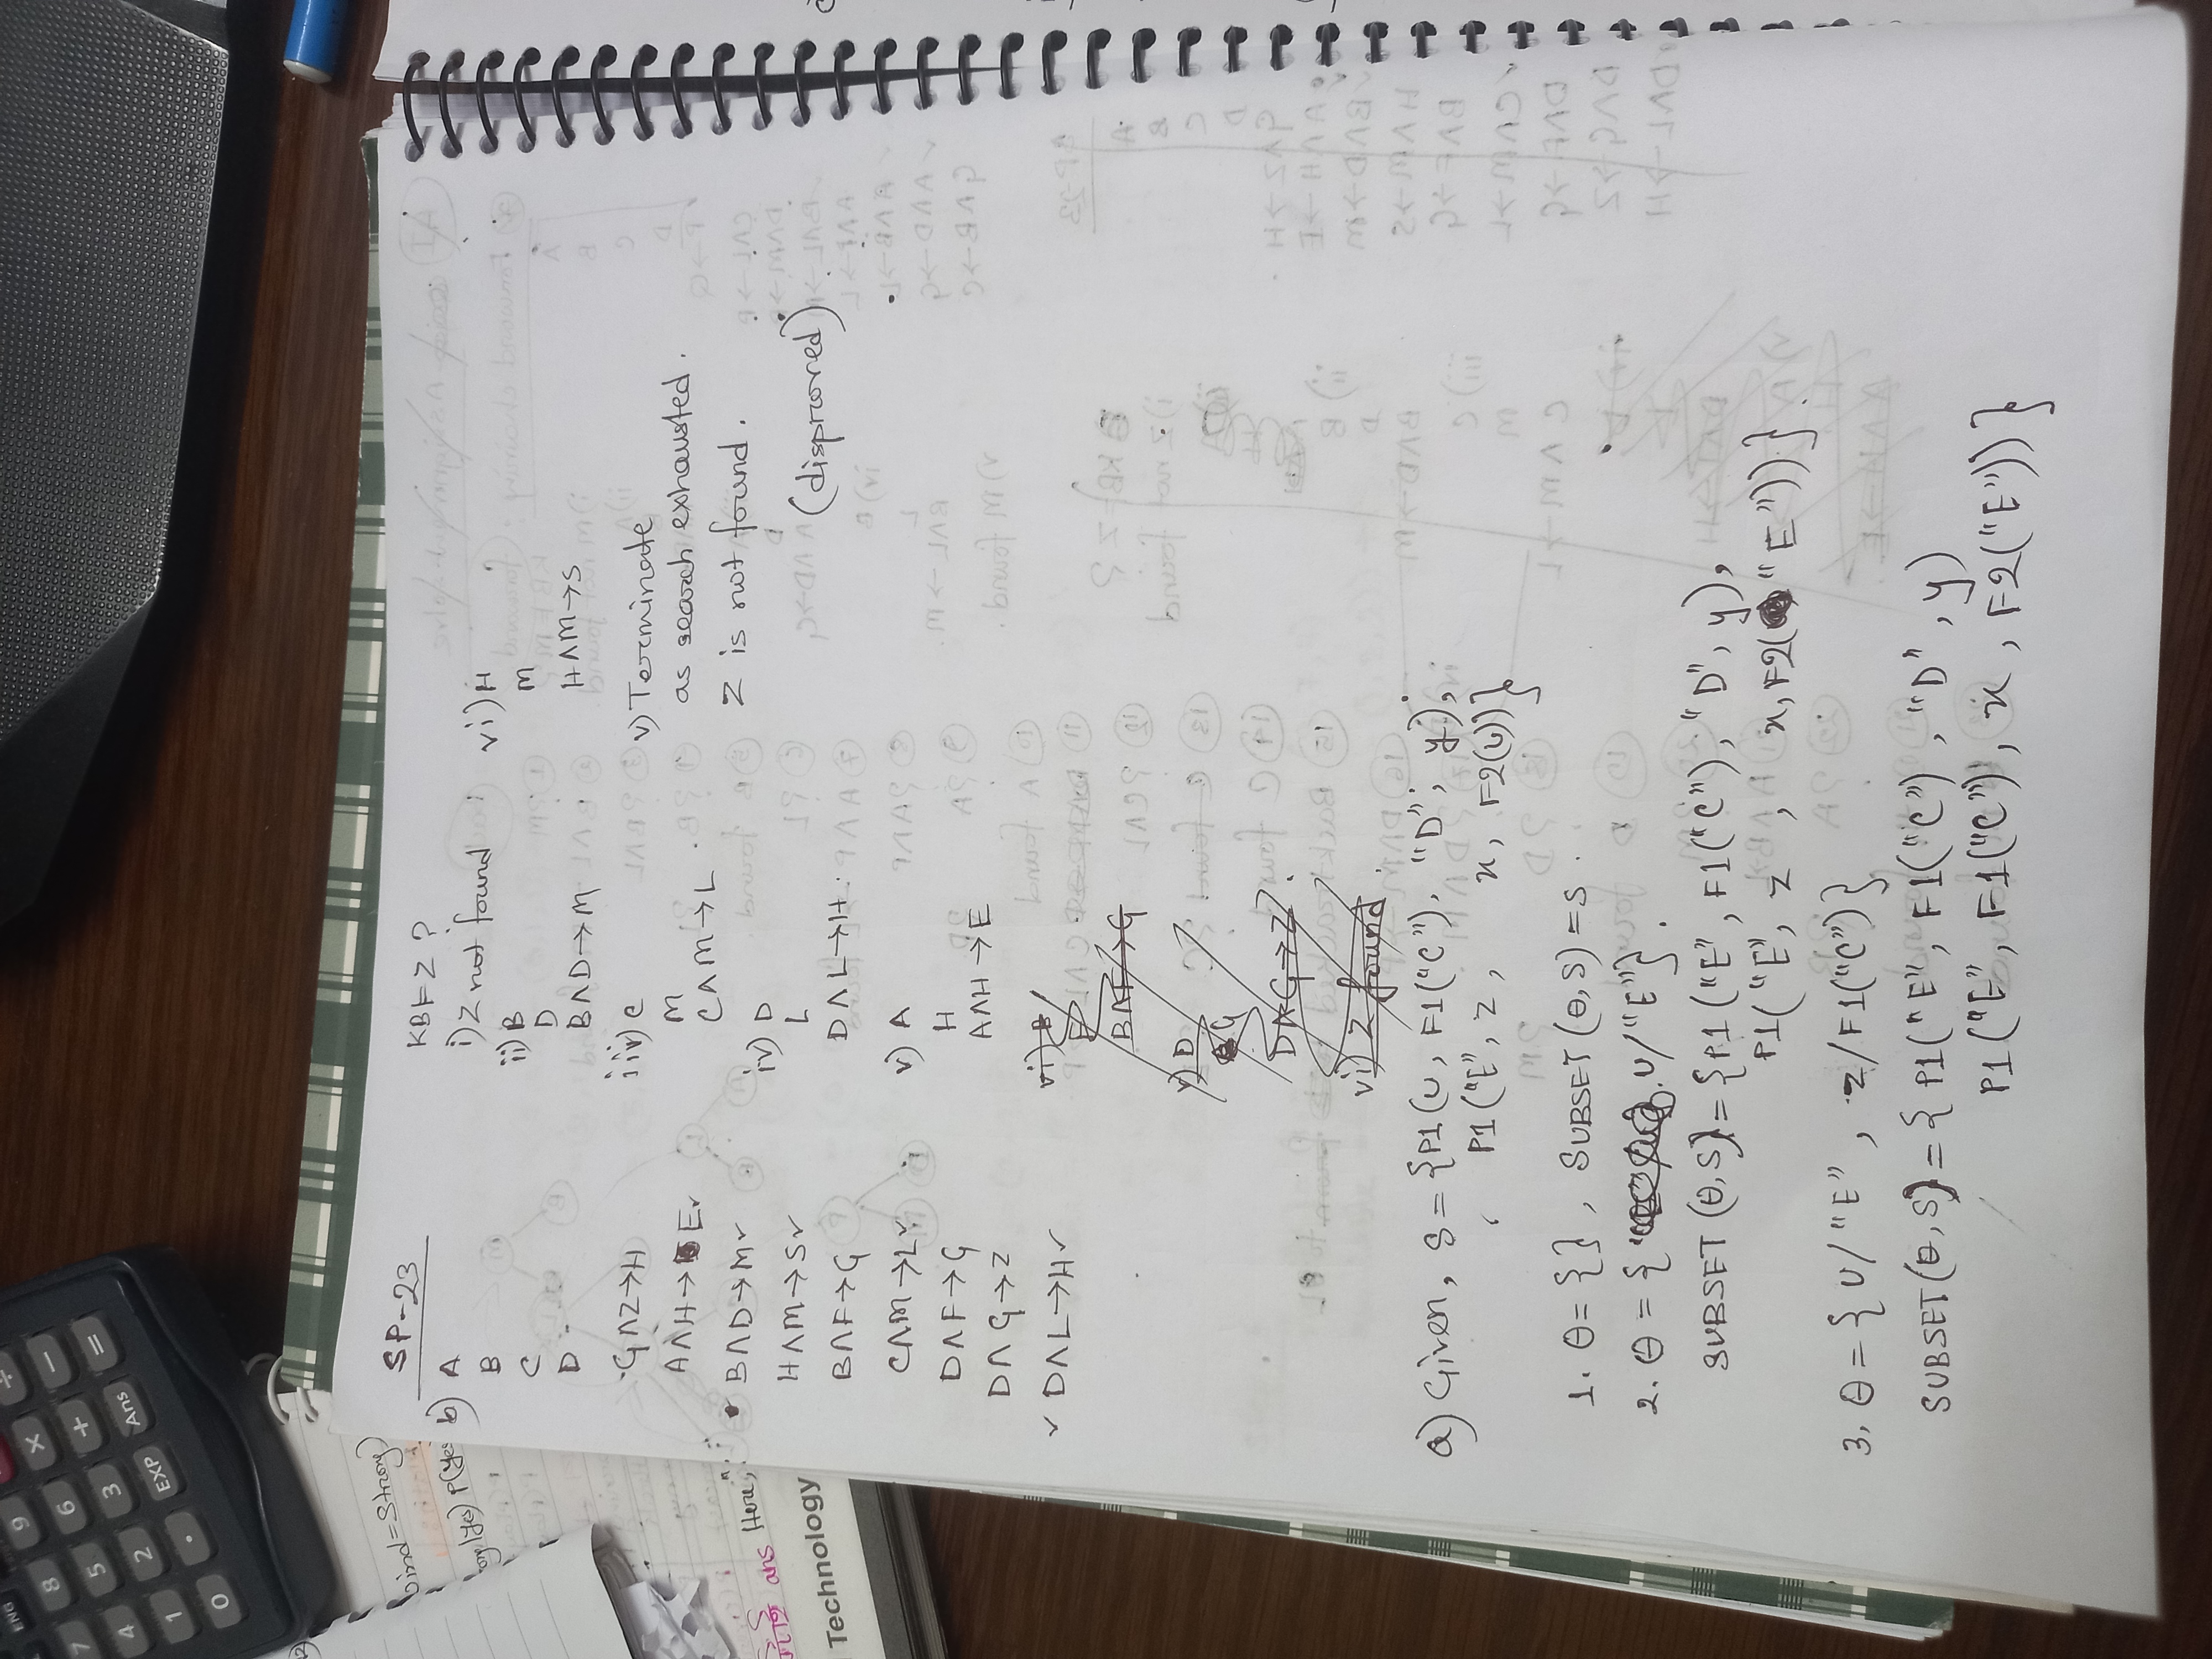 ENG
7 8 9
4 5 6 × ÷
1 2 3 + −
0 . EXP Ans =
wind=Strong)
ong/yes) P(yes
ans Here,
Technology
SP-23
b) A
B
C
D
G∧Z→H
A∧H→E✓
B∧D→M✓
H∧M→S✓
B∧F→G
C∧M→L✓
D∧F→G
D∧G→Z
✓ D∧L→H✓
KB⊨Z?
i) Z not found
ii) B
D
B∧D→M
iii) C
M
C∧M→L
iv) D
L
D∧L→H.
v) A
H
A∧H→E
vi) B
F
B∧F→G
v) D
G
D∧G→Z.
vi) Z found.
vi) H
M
H∧M→S
v) Terminate
as search exhausted.
Z is not found.
(disproved).
a) Given, S={P1(u, F1("C"), "D", y),
P1("E", z, x, F2(u))}
1. θ={}, SUBSET(θ,S)=S.
2. θ={u/"E"}.
SUBSET(θ,S)={P1("E", F1("C"), "D", y),
P1("E", z, x, F2("E"))}.
3. θ={u/"E", z/F1("C")}
SUBSET(θ,S)={P1("E", F1("C"), "D", y)
P1("E", F1("C"), x, F2("E"))}